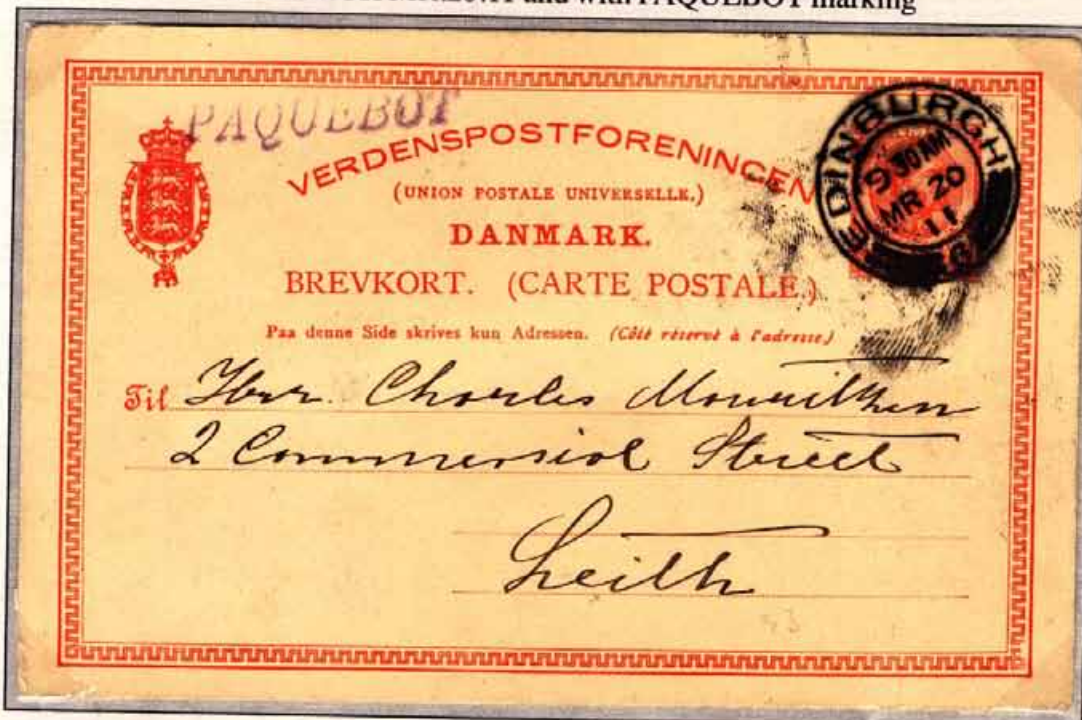 and with PAQUEBOT marking
PAQUEBOT
VERDENSPOSTFORENINGEN
(UNION POSTALE UNIVERSELLE.)
DANMARK.
BREVKORT. (CARTE POSTALE.)
Paa denne Side skrives kun Adressen. (Côté réservé à l'adresse.)
EDINBURGH
9 30 AM
MR 20
11
G
Til Herr. Charles
2 Commersiol Street
Leith